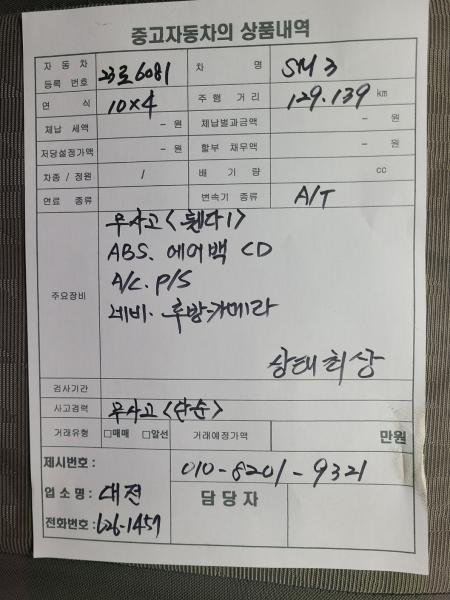 중고자동차의 상품내역
자 동 차 등록 번호 23로6081 차 명 SM3
연 식 10×4 주 행 거 리 129.139 km
체납 세액 - 원 체납벌과금액 - 원
저당설정가액 - 원 할부 채무액 - 원
차종 / 정원 / 배 기 량 cc
연료 종류 변속기 종류 A/T
주요장비
무사고<휀다1>
ABS. 에어백 CD
A/C. P/S
네비. 후방카메라
상태최상
검사기간
사고경력 무사고<단순>
거래유형 □매매 □알선 거래예정가액 만원
제시번호 :
010-8201-9321
업 소 명 : 대전 담 당 자
전화번호 : 626-1457